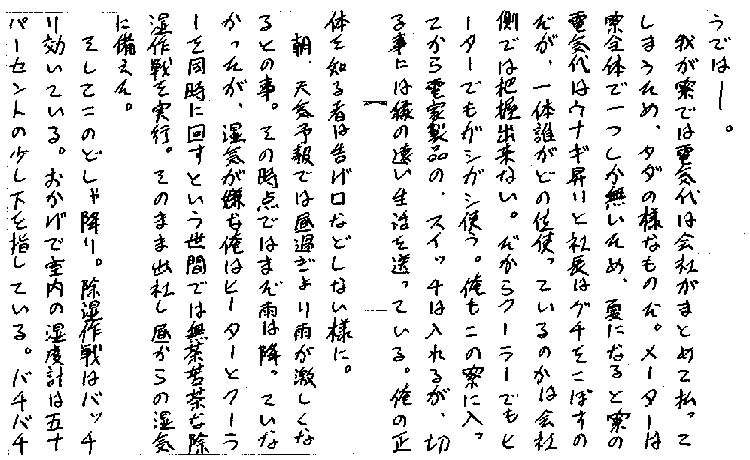 うでは―。
　我が寮では電気代は会社がまとめて払って
しまうため、タダの様なものだ。メーターは
寮全体で一つしか無いため、夏になると寮の
電気代はウナギ昇りと社長はグチをこぼすの
だが、一体誰がどの位使っているのかは会社
側では把握出来ない。だからクーラーでもヒ
ーターでもガシガシ使う。俺もこの寮に入っ
てから電家製品の、スイッチは入れるが、切
る事には縁の遠い生活を送っている。俺の正
体を知る者は告げ口などしない様に。
　朝、天気予報では昼過ぎより雨が激しくな
るとの事。その時点ではまだ雨は降っていな
かったが、湿気が嫌な俺はヒーターとクーラ
ーを同時に回すという世間では無茶苦茶な除
湿作戦を実行。そのまま出社し昼からの湿気
に備えた。
　そしてこのどしゃ降り。除湿作戦はバッチ
り効いている。おかげで室内の湿度計は五十
パーセントの少し下を指している。バチバチ